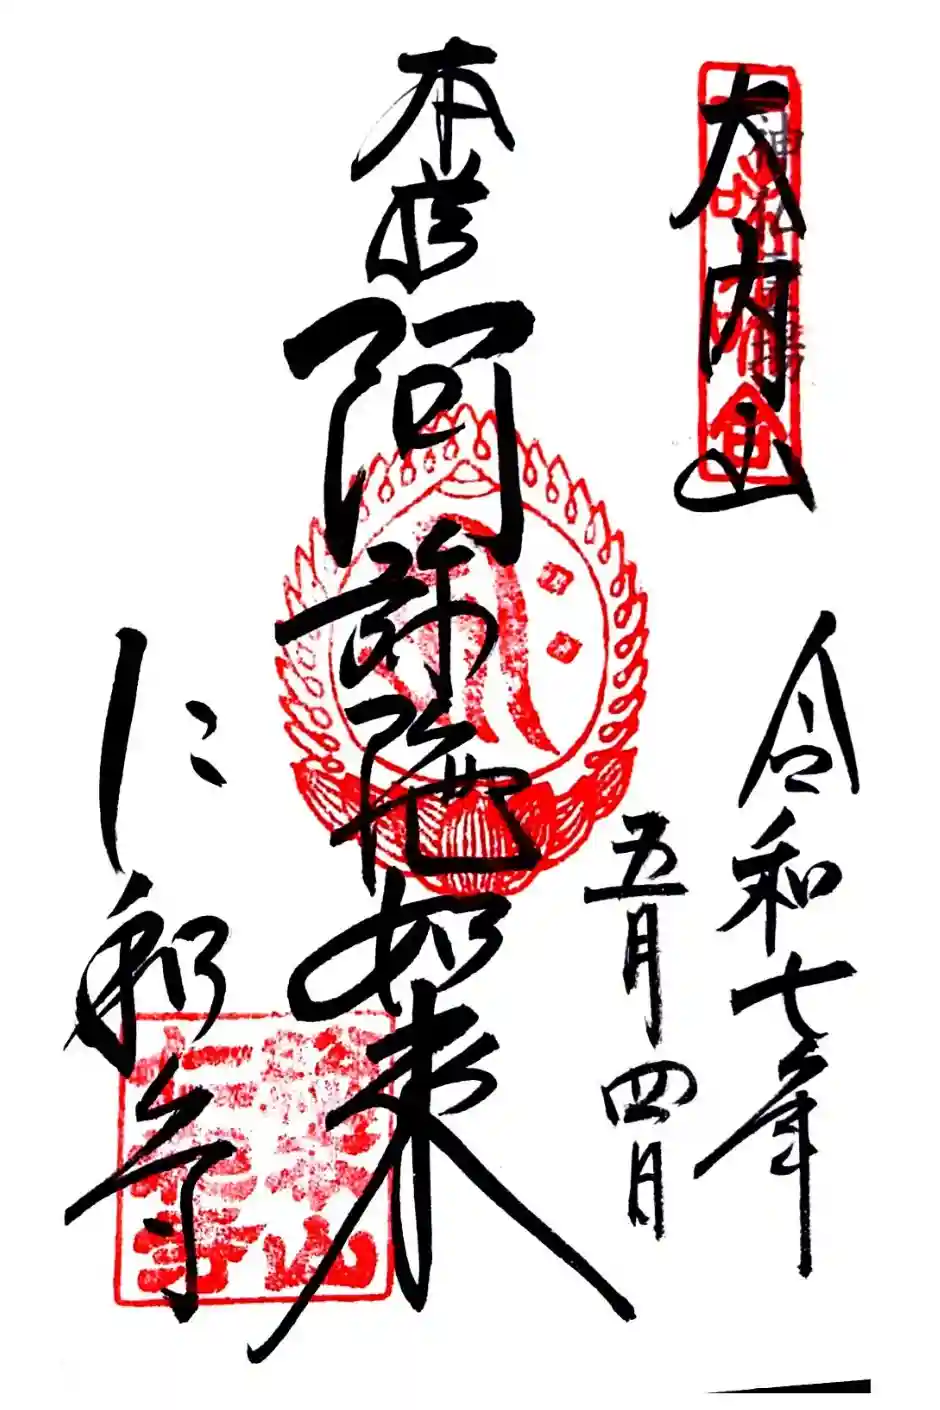 大内山
神仏霊場
令和七年
五月四日
本尊
阿弥陀如来
仁和寺